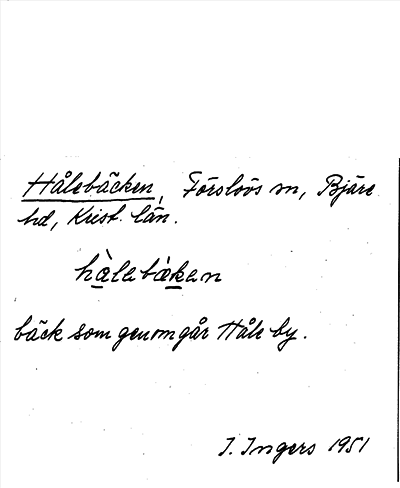 Hålebäcken, Förslövs sn, Bjäre
hd, Krist. län.
hàlebàken
bäck som genomgår Håle by.
I. Ingers 1951